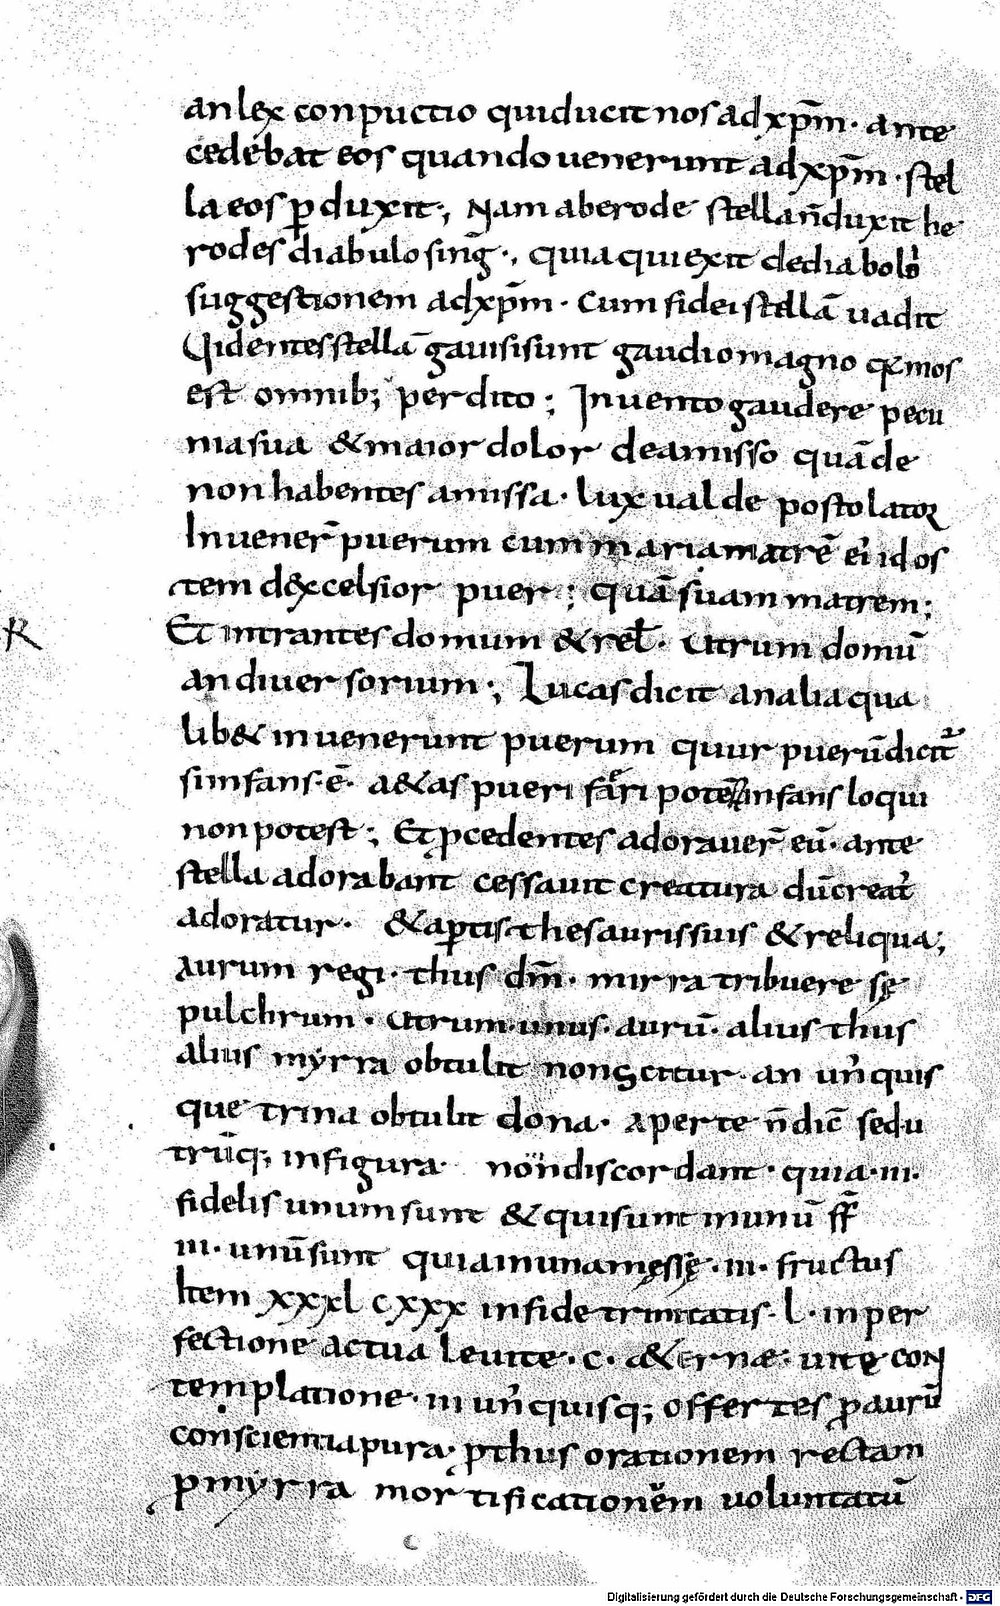 an lex conpuctio qui ducit nos ad xp̄m · ante
cedebat eos quando uenerunt ad xp̄m · stel
la eos ꝑduxit ·, Nam ab erode stella n̄ duxit he
rodes diabulo sing̅ ·, quia qui exit de diaboli
suggestionem ad xp̄m · Cum fidei stellā uadit
Uidentes stellā gauisi sunt gaudio magno q mos
est omnib; perdito ; Inuento gaudere pecu
nia sua & maior dolor de amisso quā de
non habentes amissa · lux ualde postolatoꝝ
Inuener̄ puerum cum maria matrē ei' id os
tem d& excelsior puer ; quā suam matrem ;
R
Et intrantes domum & rel̄ · Utrum domū
an diuersorium ·, Lucas dicit an alia qua
lib& inuenerunt puerum quur puerū dicit
si infans · ē · a&as pueri fari potē infans loqui
non potest ; Et pcedentes adorauer̄ eū · ante
stella adorabant cessauit creatura dū creat'
adoratur · & aꝑtis thesauris suis & reliqua ;
Aurum regi · thus dm̄ · mirra tribuere sę
pulchrum · Utrum · unus · aurū · alius thus
alius myrra obtulit non scitur · an un' quis
que trina obtulit dona · Aperte n̄ dic̄ sed u
trūq; in figura · non discordant · quia · iii ·
fidelis unum sunt & qui sunt in unū ff̄
iii · unū sunt quia in una męssę · iii · fructus
Item xxx l c xxx in fide trinitatis · L · in per
fectione actua leuite · c · a&ernæ · uitę con
templatione · iii un' quisq; offertes ꝓ aurū
conscientia pura · ꝓ thus orationem rectam
ꝓ myrra mortificationem uoluntatū
Digitalisierung gefördert durch die Deutsche Forschungsgemeinschaft - DFG